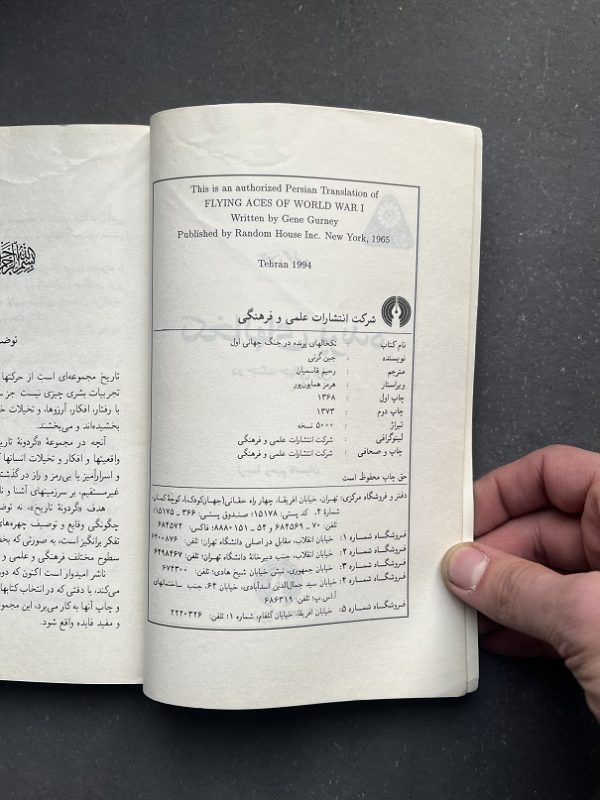 This is an authorized Persian Translation of
FLYING ACES OF WORLD WAR I
Written by Gene Gurney
Published by Random House Inc. New York, 1965
Tehran 1994
شرکت انتشارات علمی و فرهنگی
نام کتاب : تکخالهای پرنده در جنگ جهانی اول
نویسنده : جین گرنی
مترجم : رحیم قاسمیان
ویراستار : هرمز همایون‌پور
چاپ اول : ۱۳۶۸
چاپ دوم : ۱۳۷۳
تیراژ : ۵۰۰۰ نسخه
لیتوگرافی : شرکت انتشارات علمی و فرهنگی
چاپ و صحافی : شرکت انتشارات علمی و فرهنگی
حق چاپ محفوظ است
دفتر و فروشگاه مرکزی: تهران، خیابان افریقا، چهار راه حقانی (جهان‌کودک)، کوچهٔ کمان،
شمارهٔ ۴، کد پستی: ۱۵۱۷۸؛ صندوق پستی: ۳۶۶ ـ ۱۵۱۷۵؛
تلفن: ۷۰ ـ ۶۸۴۵۶۹ و ۵۴ ـ ۸۸۸۰۱۵۱؛ فاکس: ۶۸۴۵۷۲
فروشگاه شماره ۱: خیابان انقلاب، مقابل در اصلی دانشگاه تهران؛ تلفن: ۶۴۰۰۸۷۶
فروشگاه شماره ۲: خیابان انقلاب، جنب دبیرخانهٔ دانشگاه تهران؛ تلفن: ۶۴۹۸۴۶۷
فروشگاه شماره ۳: خیابان جمهوری، نبش خیابان شیخ هادی؛ تلفن: ۶۷۴۳۰۰
فروشگاه شماره ۴: خیابان سید جمال‌الدین اسدآبادی، خیابان ۶۴، جنب ساختمانهای
آ.اس.پ؛ تلفن: ۶۸۶۳۱۹
فروشگاه شماره ۵: خیابان افریقا، خیابان گلفام، شماره ۱؛ تلفن: ۲۲۲۰۳۲۶
تاریخ مجموعه‌ای است از حرکتها
تجربیات بشری چیزی نیست جز
با رفتار، افکار، آرزوها، و تخیلات
بخشیده‌اند و می‌بخشند.
آنچه در مجموعهٔ «گردونهٔ تاریخ
واقعیتها و افکار و تخیلات انسانها
و اسرارآمیز یا بی‌رمز و راز در گذشته
غیرمستقیم، بر سرزمینهای آشنا و
هدف «گردونهٔ تاریخ»، نه
چگونگی وقایع و توصیف چهره‌های
تفکر برانگیز است، به صورتی که
سطوح مختلف فرهنگی و علمی و
ناشر امیدوار است اکنون که
می‌کند، با دقتی که در انتخاب کتابها
و چاپ آنها به کار می‌برد، این
و مفید فایده واقع شود.